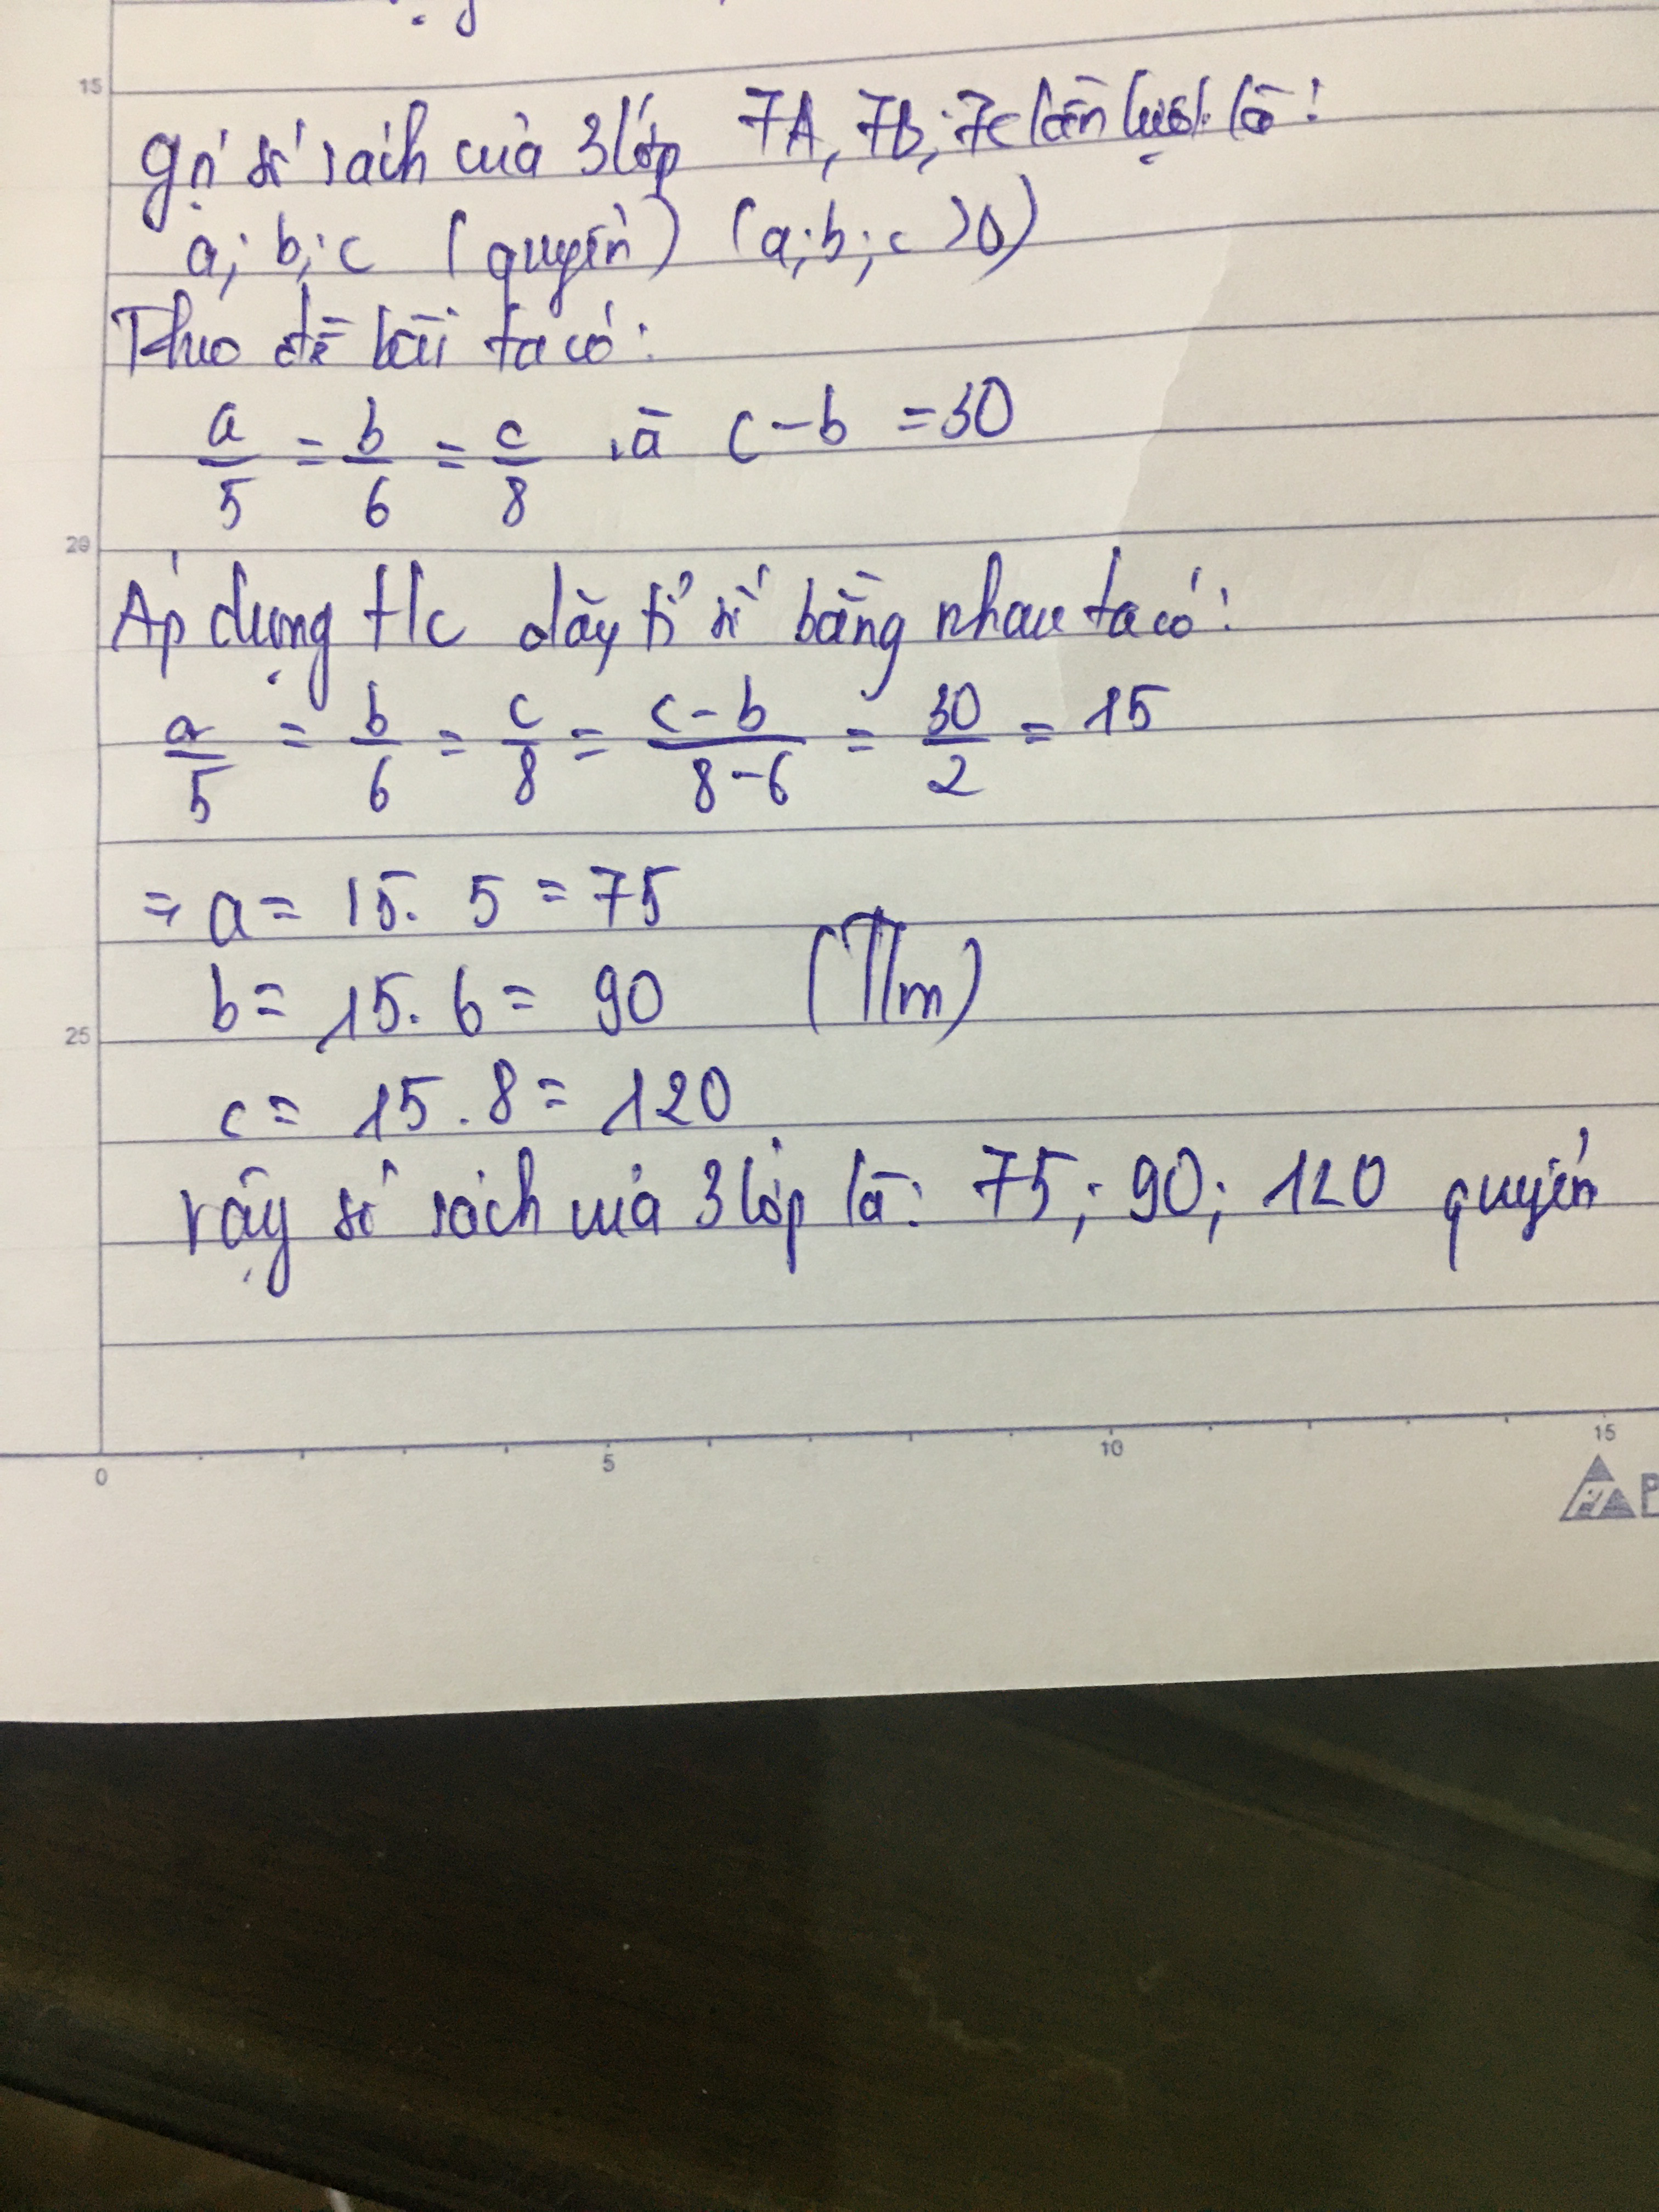 15
Gọi số sách của 3 lớp 7A, 7B, 7C lần lượt là:
a; b; c (quyển) (a; b; c > 0)
Theo đề bài ta có:
a/5 = b/6 = c/8 và c - b = 30
20
Áp dụng t/c dãy tỉ số bằng nhau ta có:
a/5 = b/6 = c/8 = c - b/8 - 6 = 30/2 = 15
=> a = 15. 5 = 75
b = 15. 6 = 90 (T/m)
25
c = 15. 8 = 120
Vậy số sách của 3 lớp là: 75; 90; 120 quyển
0 5 10 15